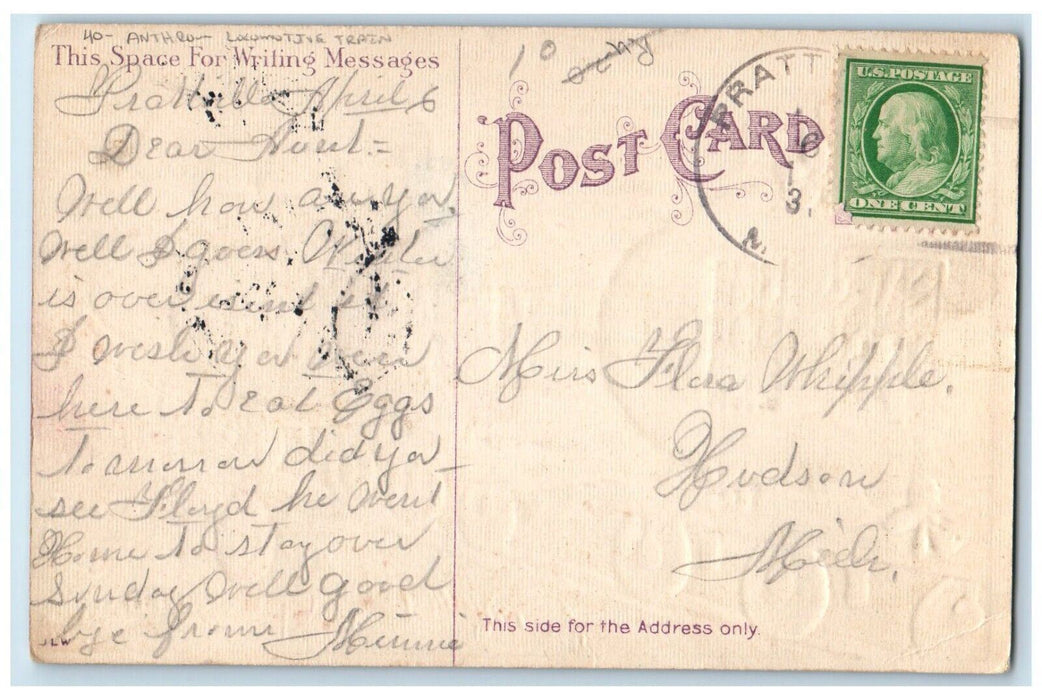 40- ANTHRO- LOCOMOTIVE TRAIN
This Space For Writing Messages
Prattville April 6
Dear Aunt:=
Well how are you,
Well I guess Winter
is over isent it
I wish you were
here to Eat Eggs
Tomorrow did you
see Floyd he went
Home to stay over
Sunday Well good
bye from Minnie
JLW
10
only
POST CARD
PRATT
U.S. POSTAGE
ONE CENT
Miss Flora Whipple.
Hudson
Mich.
This side for the Address only.